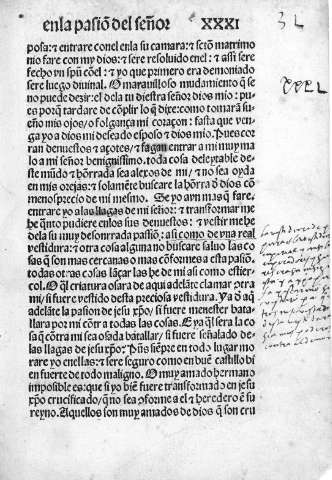 en la pasiõ del señor XXXI
posa: ⁊ entrare conel enla su camara: ⁊ sctõ matrimo
nio fare con my dios: ⁊ sere resoluido enel: ⁊ assi sere
fecho vn spũ cõel: ⁊ yo que primero era demoniado
sere luego diuinal. O marauilloso mudamiento q̃ se
no puede dezir: el dela tu diestra señor dios mio: pu
es porq̃ tardare de cõplir lo q̃ dixe: como tomara su
eño mis ojos / o folgança mi coraçon: fasta que ven
ga yo a dios mi deseado esposo ⁊ dios mio. Pues cor
ran denuestos ⁊ açotes / ⁊ fagan entrar a mi muy ma
lo a mi señor benignissimo. toda cosa deleytable de
ste mũdo ⁊ hõrrada sea alexos de mi / ⁊ no sea oyda
en mis orejas: ⁊ solamẽte buscare la hõrra d̃ dios cõ
menosprecio de mi mesmo. Se yo ayn mas q̃ fare.
entrare yo a las llagas de mi señor: ⁊ transformar me
he q̃nto pudiere enlos sus denuestos: ⁊ vestir me he
dela su muy desonrrada pasiõ: assi como de vna real
vestidura: ⁊ otra cosa alguna no buscare saluo las co
sas q̃ son mas cercanas o mas cõformes a esta pasiõ.
todas otras cosas lãçar las he de mi asi como estier
col. O q̃l criatura osara de aqui adelãte clamar ↄtra
mi / si fuere vestido desta preciosa vestidura. Ya d̃ aq̃
adelãte la pasion de jesu xp̃o / si fuere menester bata
llara por mi cõtr a todas las cosas. E ya q̃l sera la co
sa q̃ cõtra mi sea osada batallar / si fuere señalado de
las llagas de jesu xp̃o: Pũs siẽpre en todo lugar mo
rare yo enellas: ⁊ sere seguro como en buẽ castillo bi
en fuerte de todo maligno. O muy amado hermano
imposible es: que si yo biẽ fuere transformado en jesu
xp̃o crucificado / q̃ no sea ↄforme a el ⁊ heredero ẽ su
reyno. Aquellos son muy amados de dios q̃ son cru